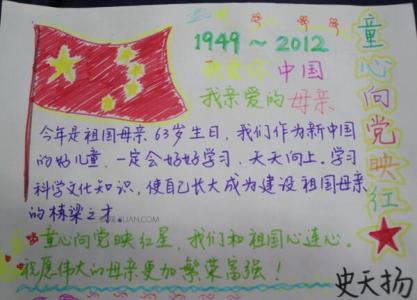 1949~2012
我爱你 中国
我亲爱的母亲
童心向党映红
今年是祖国母亲63岁生日,我们作为新中国
的好儿童,一定会好好学习,天天向上。学习
科学文化知识,使自己长大成为建设祖国母亲
的栋梁之才。
童心向党映红星,我们和祖国心连心。
祝愿伟大的母亲更加繁荣富强!
史天扬